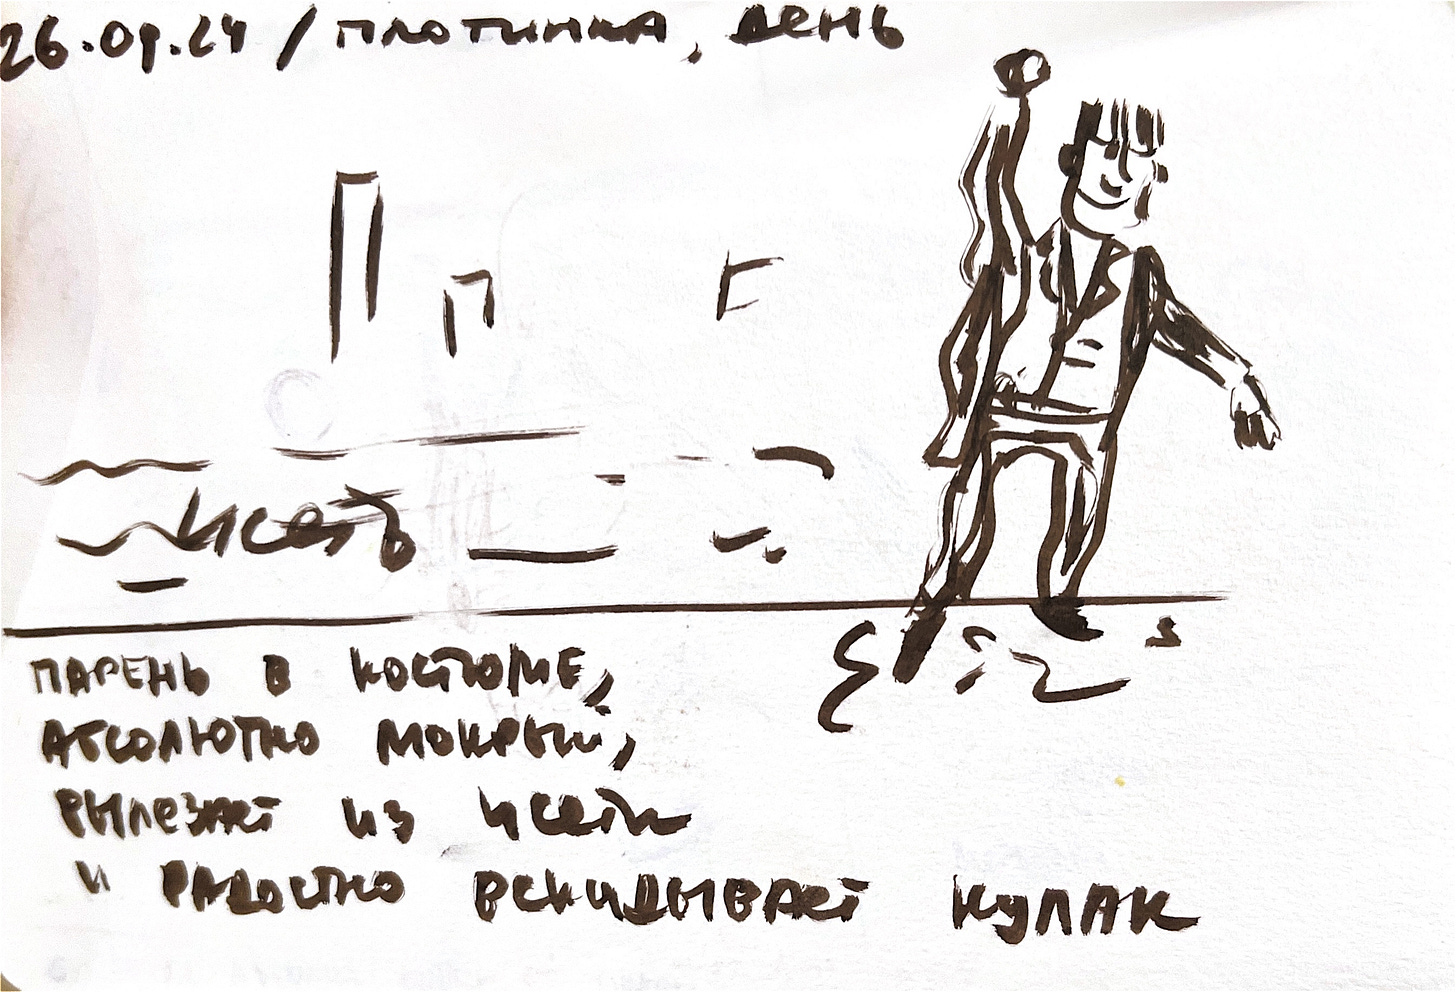 26.09.24 / плотинка, день
Исеть
парень в костюме,
абсолютно мокрый,
вылезает из исети
и радостно вскидывает кулак